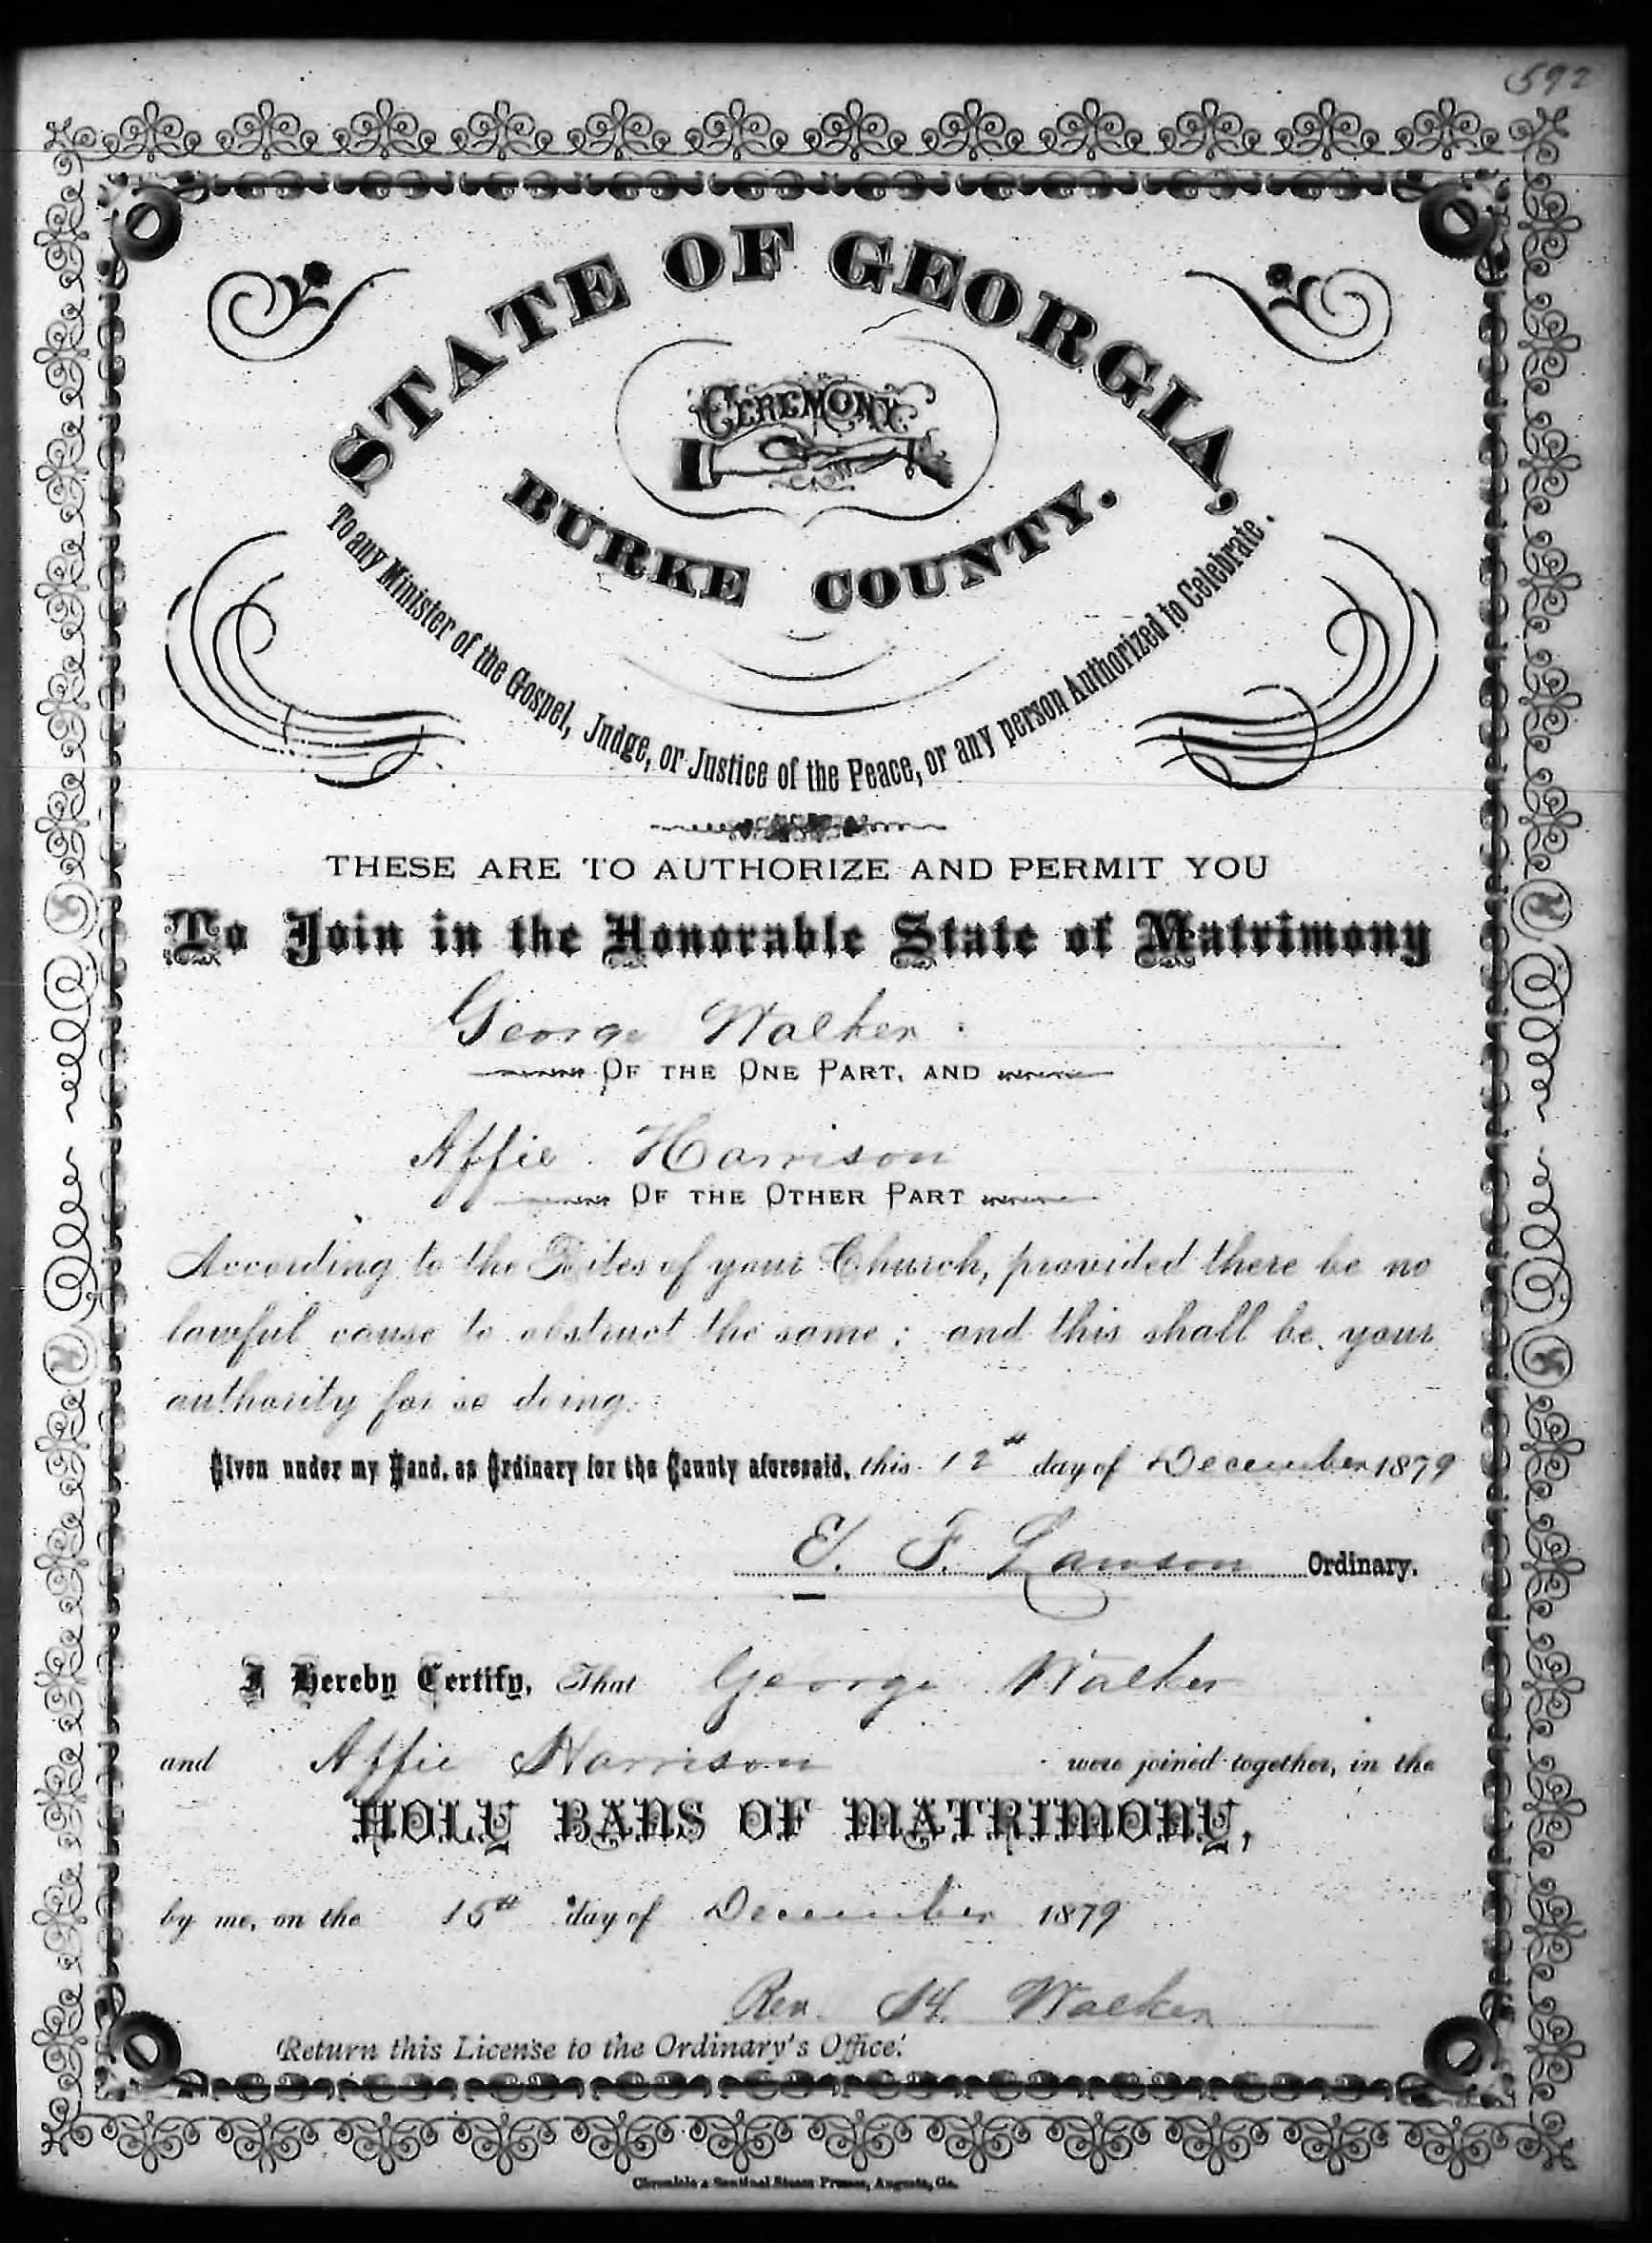 592
STATE OF GEORGIA,
CEREMONY
BURKE COUNTY.
To any Minister of the Gospel, Judge, or Justice of the Peace, or any person Authorized to Celebrate.
THESE ARE TO AUTHORIZE AND PERMIT YOU
To Join in the Honorable State of Matrimony
George Walker
OF THE ONE PART, AND
Affie Harrison
OF THE OTHER PART
According to the Rites of your Church, provided there be no
lawful cause to obstruct the same; and this shall be your
authority for so doing.
Given under my Hand, as Ordinary for the County aforesaid, this 12th day of December 1879
E. F. Lawson Ordinary.
I Hereby Certify, That George Walker
and Affie Harrison were joined together, in the
HOLY BANS OF MATRIMONY,
by me, on the 15th day of December 1879
Rev. H. Walker
Return this License to the Ordinary's Office.
Chronicle & Sentinel Steam Presses, Augusta, Ga.